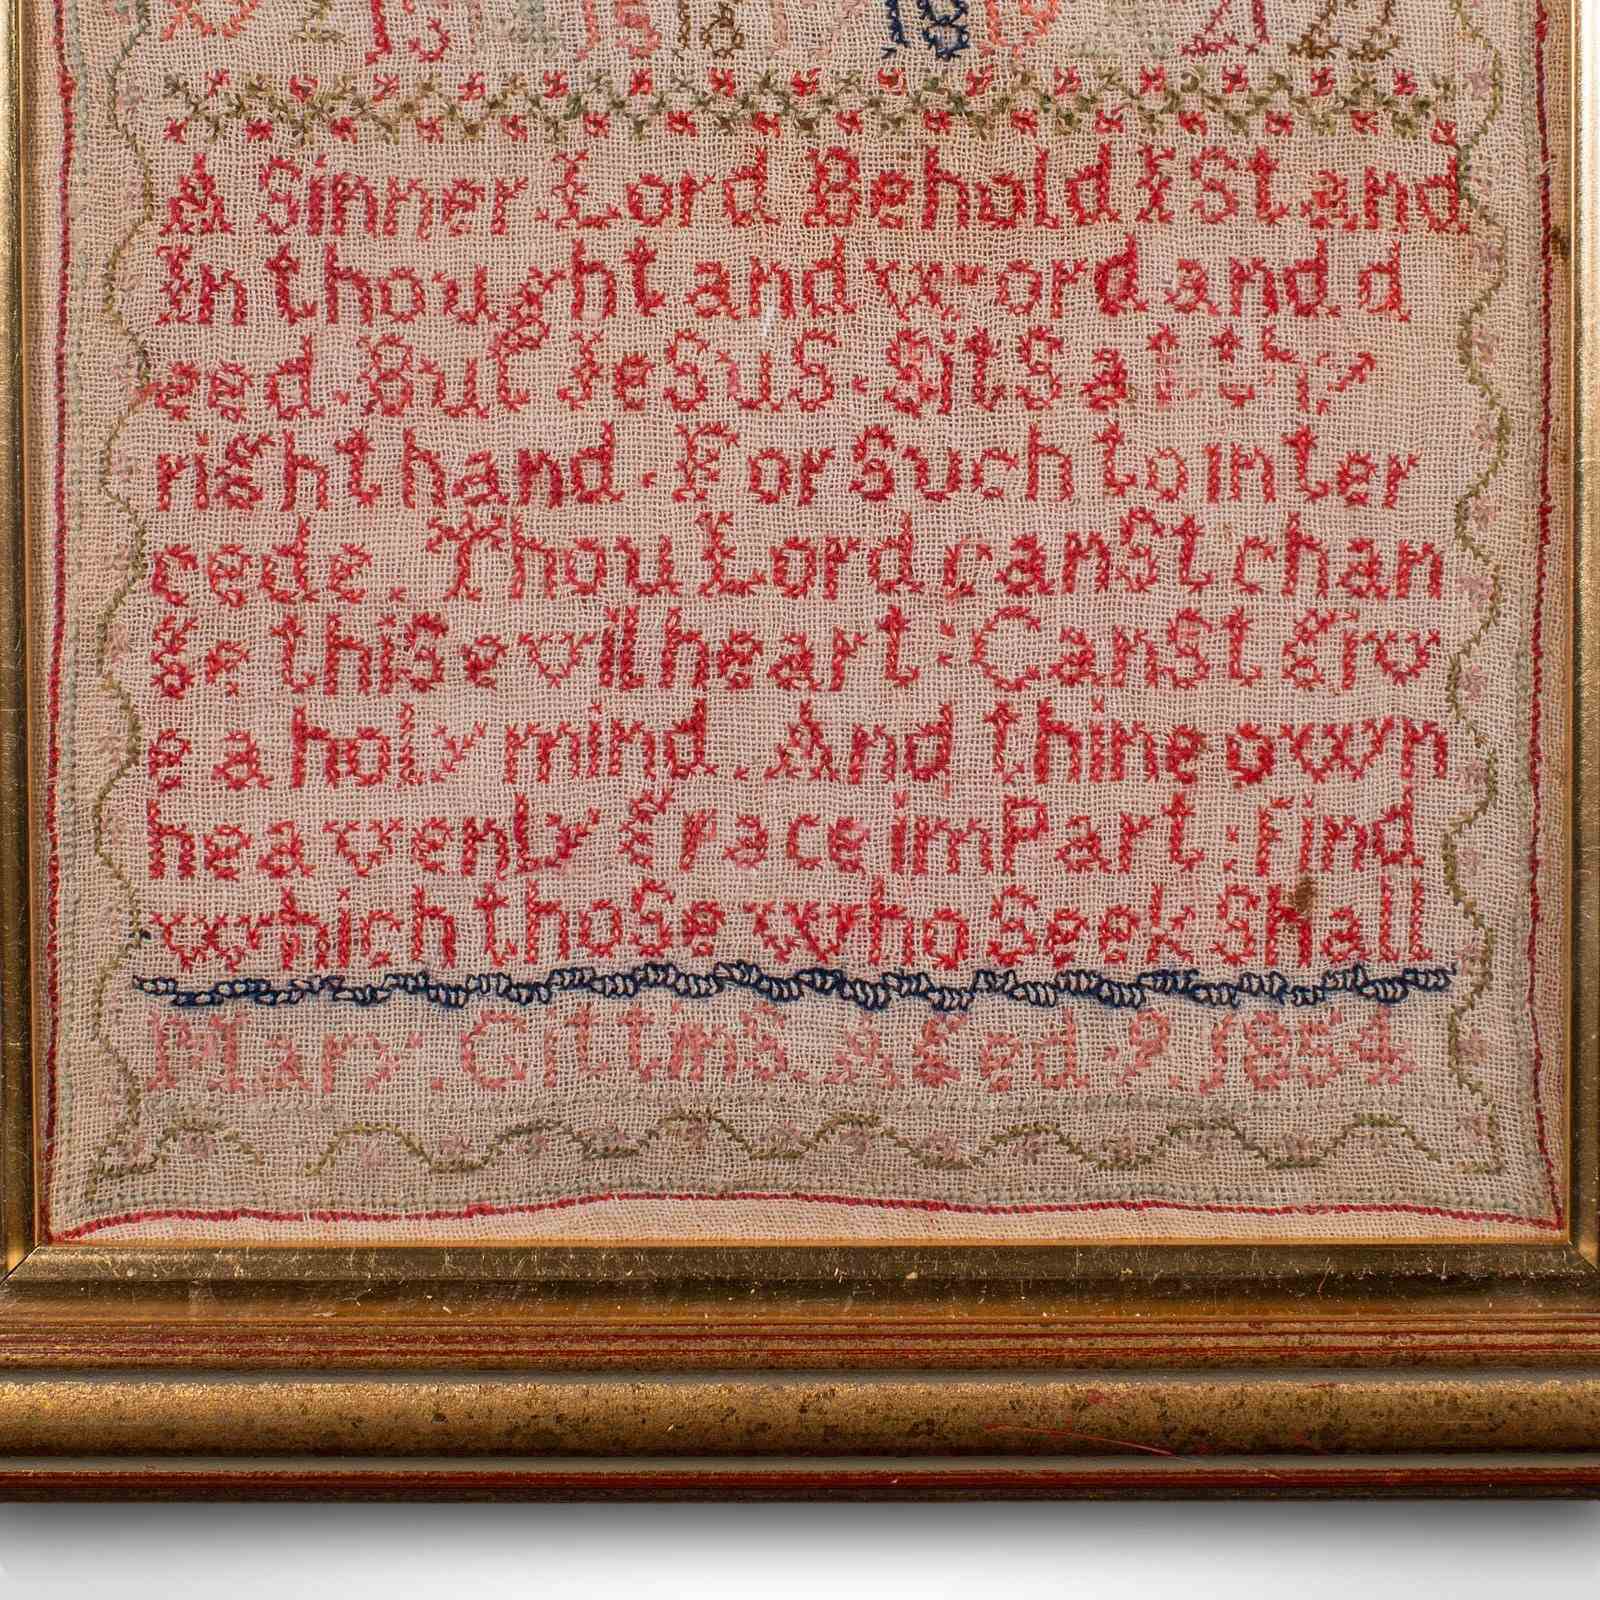 13 18 19 21 22
A Sinner Lord Behold I Stand
In thought and word and d
eed. But JeSuS. SitS at thy
right hand. For Such to inter
cede. Thou Lord canSt chan
ge thiS evil heart: CanSt giv
e a holy mind. And thine own
heavenly grace imPart: find
which thoSe who Seek Shall
Mary. GittinS. Aged. 9. 1854